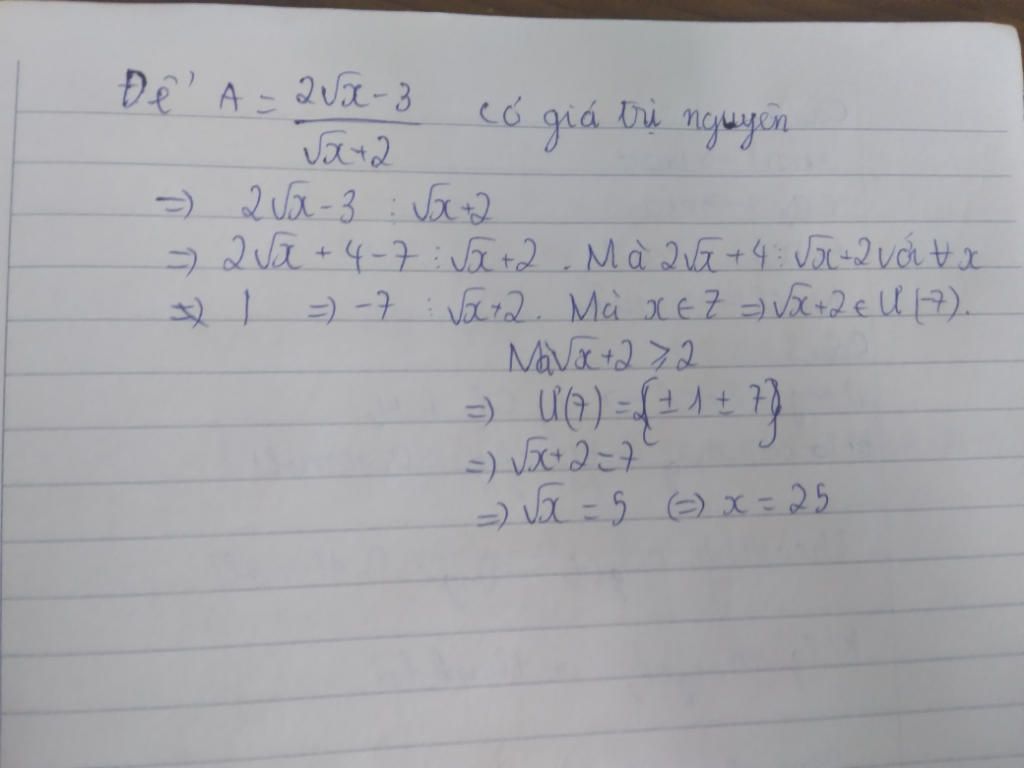 Để A = (2√x - 3)/(√x+2) có giá trị nguyên
=) 2√x - 3 ⋮ √x+2
=) 2√x + 4 - 7 ⋮ √x+2 . Mà 2√x + 4 ⋮ √x+2 với ∀x
=) -7 ⋮ √x+2. Mà x ∈ Z =) √x+2 ∈ Ư(-7).
Mà √x+2 ⩾ 2
=) Ư(7) = {±1 ± 7}
=) √x+2 = 7
=) √x = 5 (=) x = 25